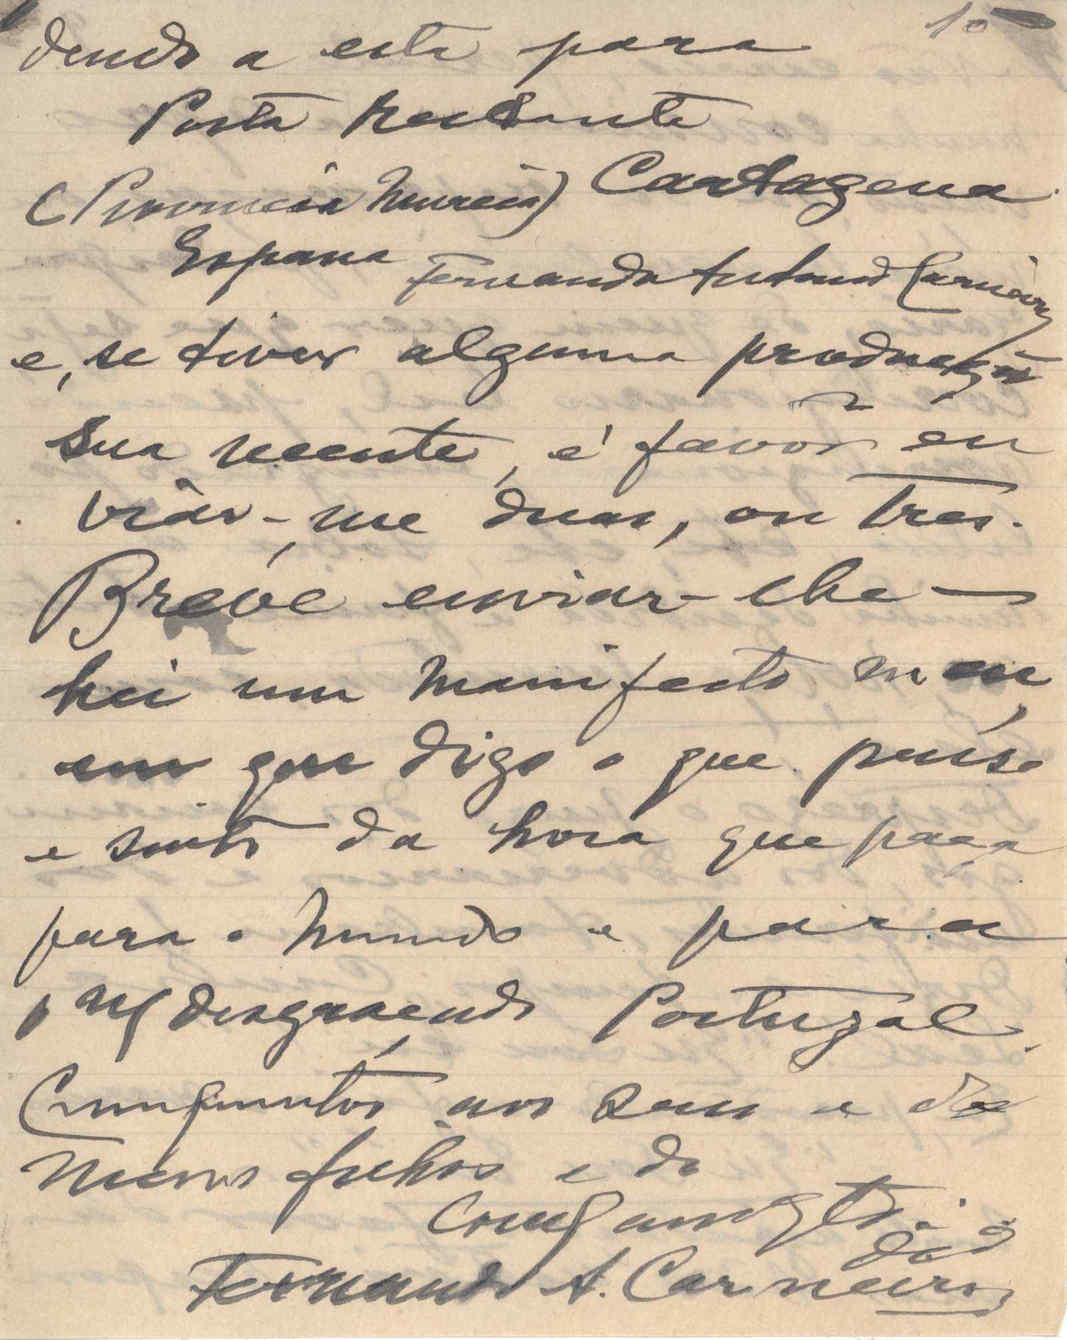 10
dendo a esta para
Posta Restante
(Provincia Murcia) Cartagena
España Fernando Antonio Carneiro
e, se tiver alguma producção
sua recente, é favor en
viar-me duas, ou tres.
Breve enviar-lhe-
hei um manifesto meu,
em que digo o que penso
e sinto da hora que passa
para o Mundo e para
o desgraçado Portugal.
Cumprimentos aos seus e de
meus filhos e do
Comp amg
Fernando A. Carneiro